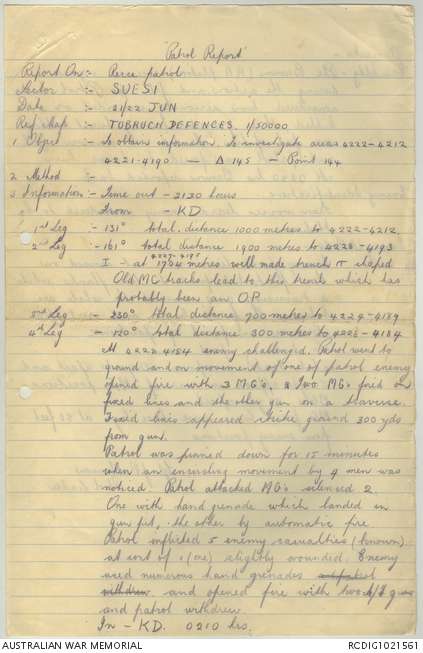 "Patrol Report"
Report On :- Recce patrol
Sector :- SUESI
Date :- 21/22 JUN
Ref Map :- TOBRUCH DEFENCES. 1/50000
1 Object :- To obtain information. To investigate areas 4222-4212
4221-4190 — Δ 145 — Point 144
2 Method :-
3 Information :- Time out - 2130 hours
From - KD
1st Leg :- 131° total distance 1000 metres to 4222-4212.
2nd Leg - 161° total distance 1900 metres to 4228-4193
I at 1904 metres well made trench π shaped
Old MC tracks lead to this trench which has
probably been an O.P.
3rd Leg - 230° total distance 700 metres to 4224-4189
4th Leg - 120° total distance 300 metres to 4228-4184
At 4228 4184 enemy challenged. Patrol went to
ground and on movement of one of patrol enemy
opened fire with 3 MG's, & Two MGs fired on
fixed lines and the other gun on a traverse.
Fixed lines appeared strike ground 300 yds
from gun.
Patrol was pinned down for 15 minutes
when an encircling movement by 9 men was
noticed. Patrol attacked MG's silenced 2.
One with hand grenade which landed in
gun pit, the other by automatic fire.
Patrol inflicted 5 enemy casualties (known)
at cost of 1 (one) slightly wounded. Enemy
used numerous hand grenades
withdrew and opened fire with two
and patrol withdrew.
In - KD. 0210 hrs.
AUSTRALIAN WAR MEMORIAL
RCDIG1021561